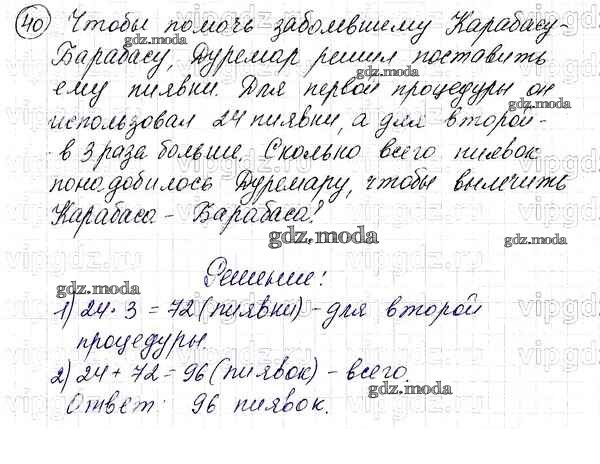 40 Чтобы помочь заболевшему Карабасу-
Барабасу, Дуремар решил поставить
ему пиявки. Для первой процедуры он
использовал 24 пиявки, а для второй -
- в 3 раза больше. Сколько всего пиявок
понадобилось Дуремару, чтобы вылечить
Карабаса - Барабаса?
Решение:
1) 24 · 3 = 72 (пиявки) - для второй
процедуры.
2) 24 + 72 = 96 (пиявок) - всего.
Ответ: 96 пиявок.
gdz.moda
vipgdz.ru